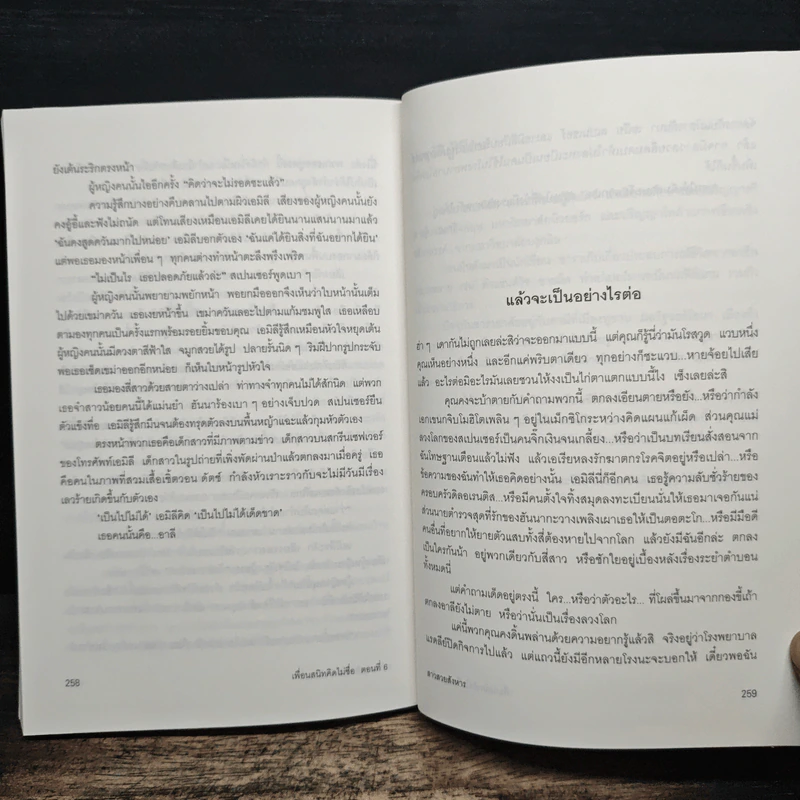 ยังเต้นระริกตรงหน้า
ผู้หญิงคนนั้นไออีกครั้ง “คิดว่าจะไม่รอดซะแล้ว”
ความรู้สึกบางอย่างคืบคลานไปตามผิวเอมิลี เสียงของผู้หญิงคนนั้นยัง
คงอู้อี้และฟังไม่ถนัด แต่โทนเสียงเหมือนเอมิลีเคยได้ยินนานแสนนานมาแล้ว
‘ฉันคงสูดควันมากไปหน่อย’ เอมิลีบอกตัวเอง ‘ฉันแค่ได้ยินสิ่งที่ฉันอยากได้ยิน’
แต่พอเธอมองหน้าเพื่อน ๆ ทุกคนต่างทำหน้าตะลึงพรึงเพริด
“ไม่เป็นไร เธอปลอดภัยแล้วล่ะ” สเปนเซอร์พูดเบา ๆ
ผู้หญิงคนนั้นพยายามพยักหน้า พอยกมือออกจึงเห็นว่าใบหน้านั้นเต็ม
ไปด้วยเขม่าควัน เธอเงยหน้าขึ้น เขม่าควันเลอะไปตามแก้มชมพูใส เธอเหลือบ
ตามองทุกคนเป็นครั้งแรกพร้อมรอยยิ้มขอบคุณ เอมิลีรู้สึกเหมือนหัวใจหยุดเต้น
ผู้หญิงคนนั้นมีดวงตาสีฟ้าใส จมูกสวยได้รูป ปลายรั้นนิด ๆ ริมฝีปากรูปกระจับ
พอเธอเช็ดเขม่าออกอีกหน่อย ก็เห็นใบหน้ารูปหัวใจ
เธอมองสี่สาวด้วยสายตาว่างเปล่า ท่าทางจำทุกคนไม่ได้สักนิด แต่พวก
เธอจำสาวน้อยคนนี้ได้แม่นยำ ฮันนาร้องเบา ๆ อย่างเจ็บปวด สเปนเซอร์ยืน
ตัวแข็งทื่อ เอมิลีรู้สึกมึนจนต้องทรุดตัวลงบนพื้นหญ้าแฉะแล้วกุมหัวตัวเอง
ตรงหน้าพวกเธอคือเด็กสาวที่มีภาพตามข่าว เด็กสาวบนสกรีนเซฟเวอร์
ของโทรศัพท์เอมิลี เด็กสาวในรูปถ่ายที่เพิ่งพัดผ่านป่าแล้วตกลงมาเมื่อครู่ เธอ
คือคนในภาพที่สวมเสื้อเชิ้ตวอน ดัตช์ กำลังหัวเราะราวกับจะไม่มีวันมีเรื่อง
เลวร้ายเกิดขึ้นกับตัวเอง
‘เป็นไปไม่ได้’ เอมิลีคิด ‘เป็นไปไม่ได้เด็ดขาด’
เธอคนนั้นคือ...อาลี
258
เพื่อนสนิทคิดไม่ซื่อ ตอนที่ 6
แล้วจะเป็นอย่างไรต่อ
ฮ่า ๆ เดากันไม่ถูกเลยล่ะสิว่าจะออกมาแบบนี้ แต่คุณก็รู้นี่ว่ามันโรสวูด แวบหนึ่ง
คุณเห็นอย่างหนึ่ง และอีกแค่พริบตาเดียว ทุกอย่างก็ซะแวบ...หายจ้อยไปเสีย
แล้ว อะไรต่อมิอะไรมันเลยชวนให้งงเป็นไก่ตาแตกแบบนี้ไง เซ็งเลยล่ะสิ
คุณคงจะบ้าตายกับคำถามพวกนี้ ตกลงเอียนตายหรือยัง...หรือว่ากำลัง
เอกเขนกจิบโมฮิโตเพลิน ๆ อยู่ในเม็กซิโกระหว่างคิดแผนแก้เผ็ด ส่วนคุณแม่
ลวงโลกของสเปนเซอร์เป็นคนจิ๊กเงินจนเกลี้ยง...หรือว่าเป็นบทเรียนสั่งสอนจาก
ฉันโทษฐานเตือนแล้วไม่ฟัง แล้วเอเรียหลงรักฆาตกรโรคจิตอยู่หรือเปล่า...หรือ
ข้อความของฉันทำให้เธอคิดอย่างนั้น เอมิลีนี่ก็อีกคน เธอรู้ความลับชั่วร้ายของ
ครอบครัวดิลอเรนติส...หรือมีคนตั้งใจทิ้งสมุดลงทะเบียนนั่นไว้ให้เธอมาเจอกันแน่
ส่วนนายตำรวจสุดที่รักของฮันนากะวางเพลิงเผาเธอให้เป็นตอตะโก...หรือมีมือดี
คนอื่นที่อยากให้ยายตัวแสบทั้งสี่ต้องหายไปจากโลก แล้วยังมีฉันอีกล่ะ ตกลง
เป็นใครกันน้า อยู่พวกเดียวกับสี่สาว หรือชักใยอยู่เบื้องหลังเรื่องระยำตำบอน
ทั้งหมดนี่
แต่คำถามเด็ดอยู่ตรงนี้ ใคร...หรือว่าตัวอะไร... ที่โผล่ขึ้นมาจากกองขี้เถ้า
ตกลงอาลียังไม่ตาย หรือว่านั่นเป็นเรื่องลวงโลก
แค่นี้พวกคุณคงดิ้นพล่านด้วยความอยากรู้แล้วสิ จริงอยู่ว่าโรงพยาบาล
แรดลีย์ปิดกิจการไปแล้ว แต่แถวนี้ยังมีอีกหลายโรงนะจะบอกให้ เดี๋ยวพอฉัน
สาวสวยสังหาร
259